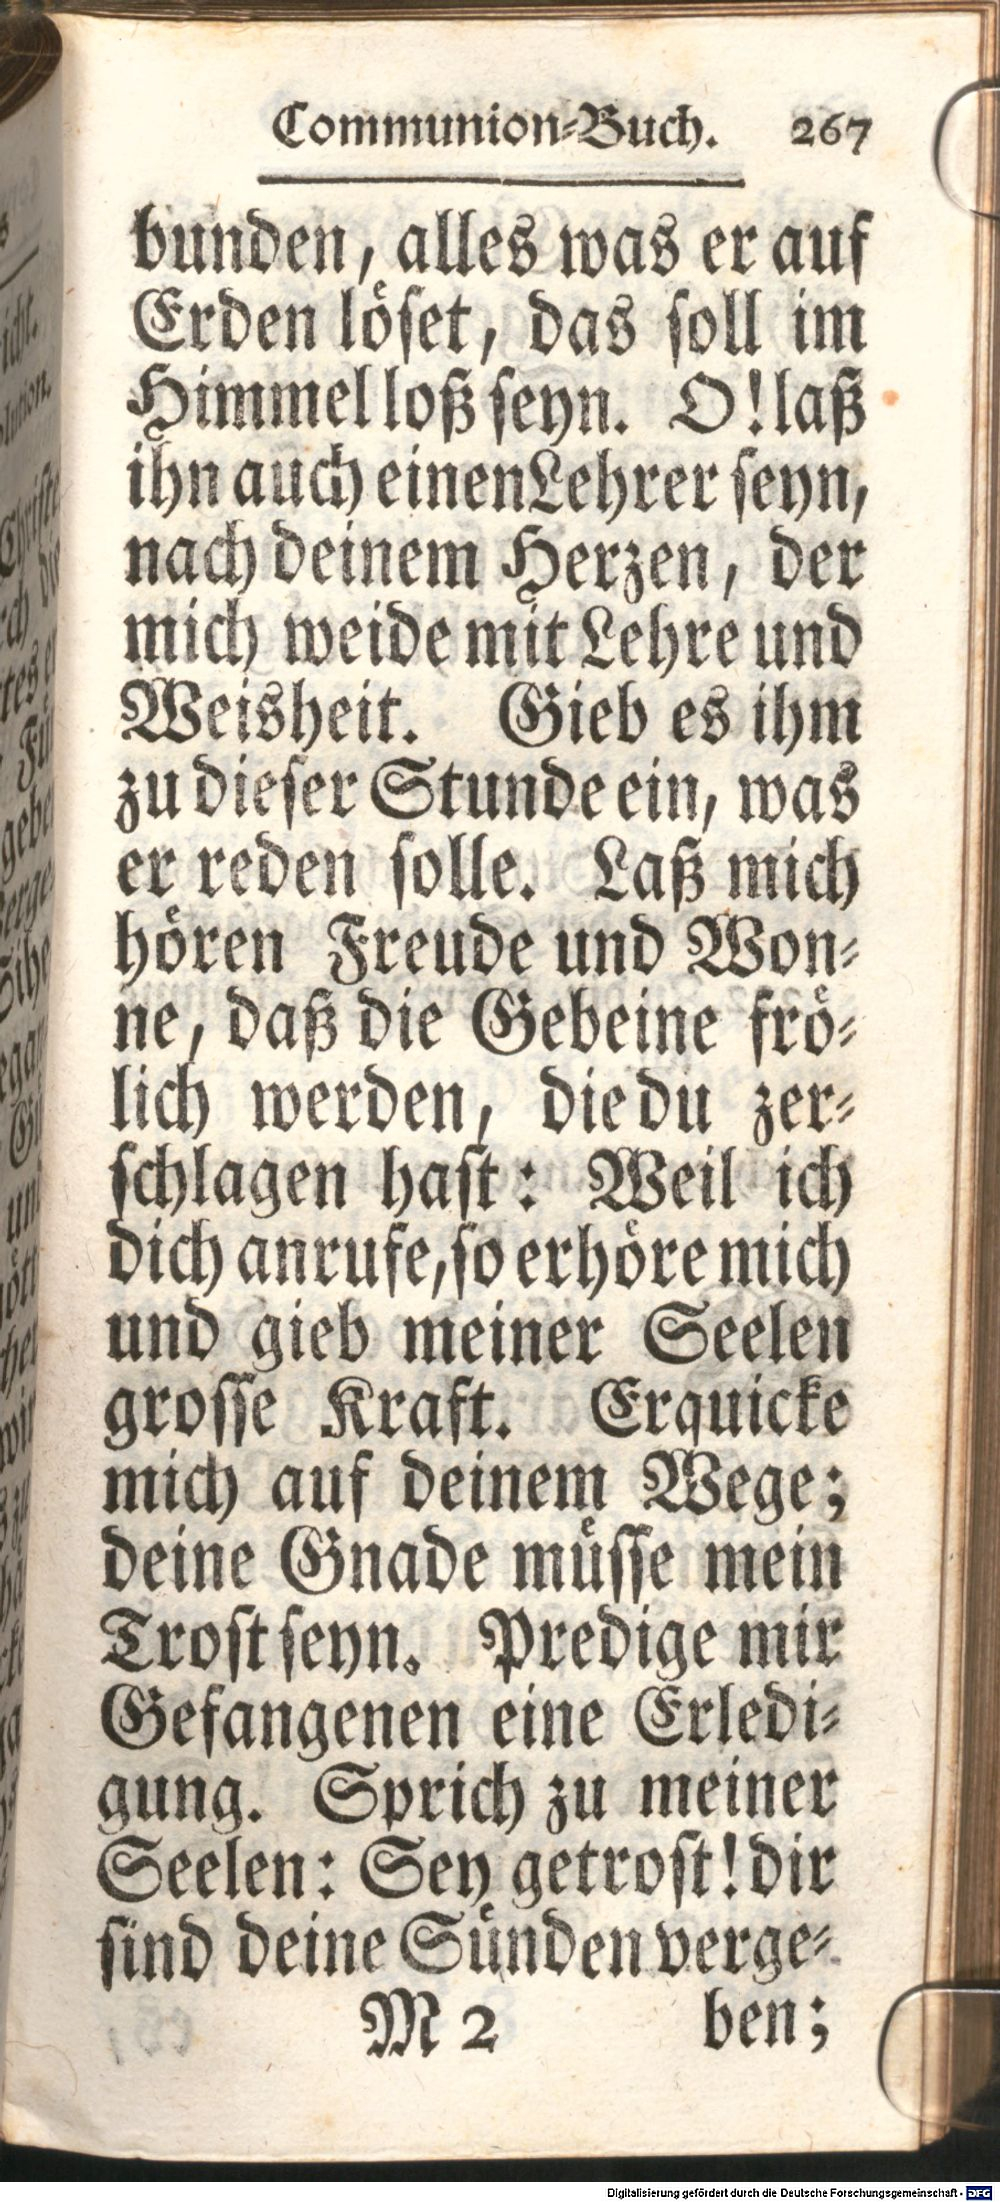 Communion-Buch. 267
bunden, alles was er auf
Erden löſet, das ſoll im
Himmel loß ſeyn. O! laß
ihn auch einen Lehrer ſeyn,
nach deinem Herzen, der
mich weide mit Lehre und
Weisheit. Gieb es ihm
zu dieſer Stunde ein, was
er reden ſolle. Laß mich
hören Freude und Won-
ne, daß die Gebeine frö-
lich werden, die du zer-
ſchlagen haſt: Weil ich
dich anrufe, ſo erhöre mich
und gieb meiner Seelen
groſſe Kraft. Erquicke
mich auf deinem Wege;
deine Gnade müſſe mein
Troſt ſeyn. Predige mir
Gefangenen eine Erledi-
gung. Sprich zu meiner
Seelen: Sey getroſt! dir
ſind deine Sünden verge-
M 2 ben;
Digitalisierung gefördert durch die Deutsche Forschungsgemeinschaft - DFG